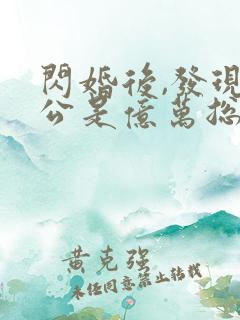 閃婚後,發現
公是億萬
黃克强
未經同意禁止轉載